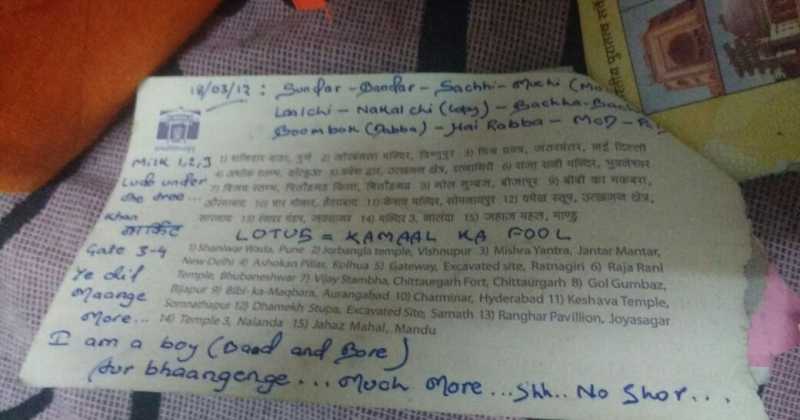 18/03/12 : Sundar - Bandar - Sachhi - Muchi (Mo
Laalchi - Nakalchi (Copy) - Bachha - Bac
Boombox (Dabba) - Hai Rabba - MOD - Pa
Milk 1,2,3
Ludo under
the tree...
Khan
मार्किट
Gate 3-4
Ye dil
Maange
More...
1) शनिवार वाडा, पुणे 2) जोरबंगला मन्दिर, विष्णुपुर 3) मिश्र यन्त्र, जंतरमंतर, नई दिल्ली
4) अशोक स्तम्भ, कोल्हुआ 5) प्रवेश द्वार, उत्खनन क्षेत्र, रत्नागिरी 6) राजा रानी मन्दिर, भुवनेश्वर
7) विजय स्तम्भ, चित्तौड़गढ़ किला, चित्तौड़गढ़ 8) गोल गुम्बज, बीजापुर 9) बीबी का मकबरा,
औरंगाबाद 10) चार मीनार, हैदराबाद 11) केशव मन्दिर, सोमनाथपुर 12) धमेख स्तूप, उत्खनन क्षेत्र,
सारनाथ 13) रंगघर मंडप, जयसागर 14) मन्दिर 3, नालंदा 15) जहाज महल, माण्डु
LOTUS = KAMAAL KA FOOL
1) Shaniwar Wada, Pune 2) Jorbangla temple, Vishnupur 3) Mishra Yantra, Jantar Mantar,
New Delhi 4) Ashokan Pillar, Kolhua 5) Gateway, Excavated site, Ratnagiri 6) Raja Rani
Temple, Bhubaneshwar 7) Vijay Stambha, Chittaurgarh Fort, Chittaurgarh 8) Gol Gumbaz,
Bijapur 9) Bibi-ka-Maqbara, Aurangabad 10) Charminar, Hyderabad 11) Keshava Temple,
Somnathapur 12) Dhamekh Stupa, Excavated Site, Sarnath 13) Ranghar Pavillion, Joyasagar
14) Temple 3, Nalanda 15) Jahaz Mahal, Mandu
I am a boy (Baad and Bore)
Aur bhaangenge... Much More... Shh.. No Shor...